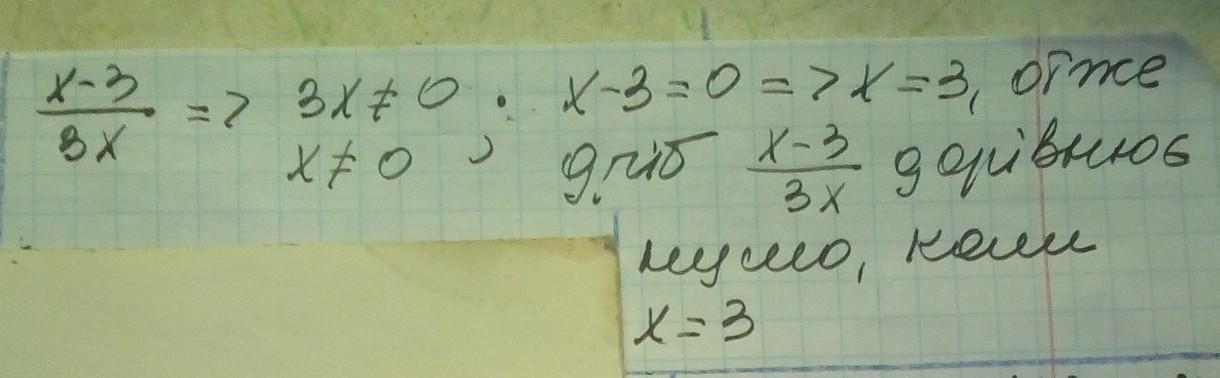 x-3/3x => 3x≠0 ; x-3=0 => x=3, отже
x≠0 дріб x-3/3x дорівнює
нулю, коли
x=3